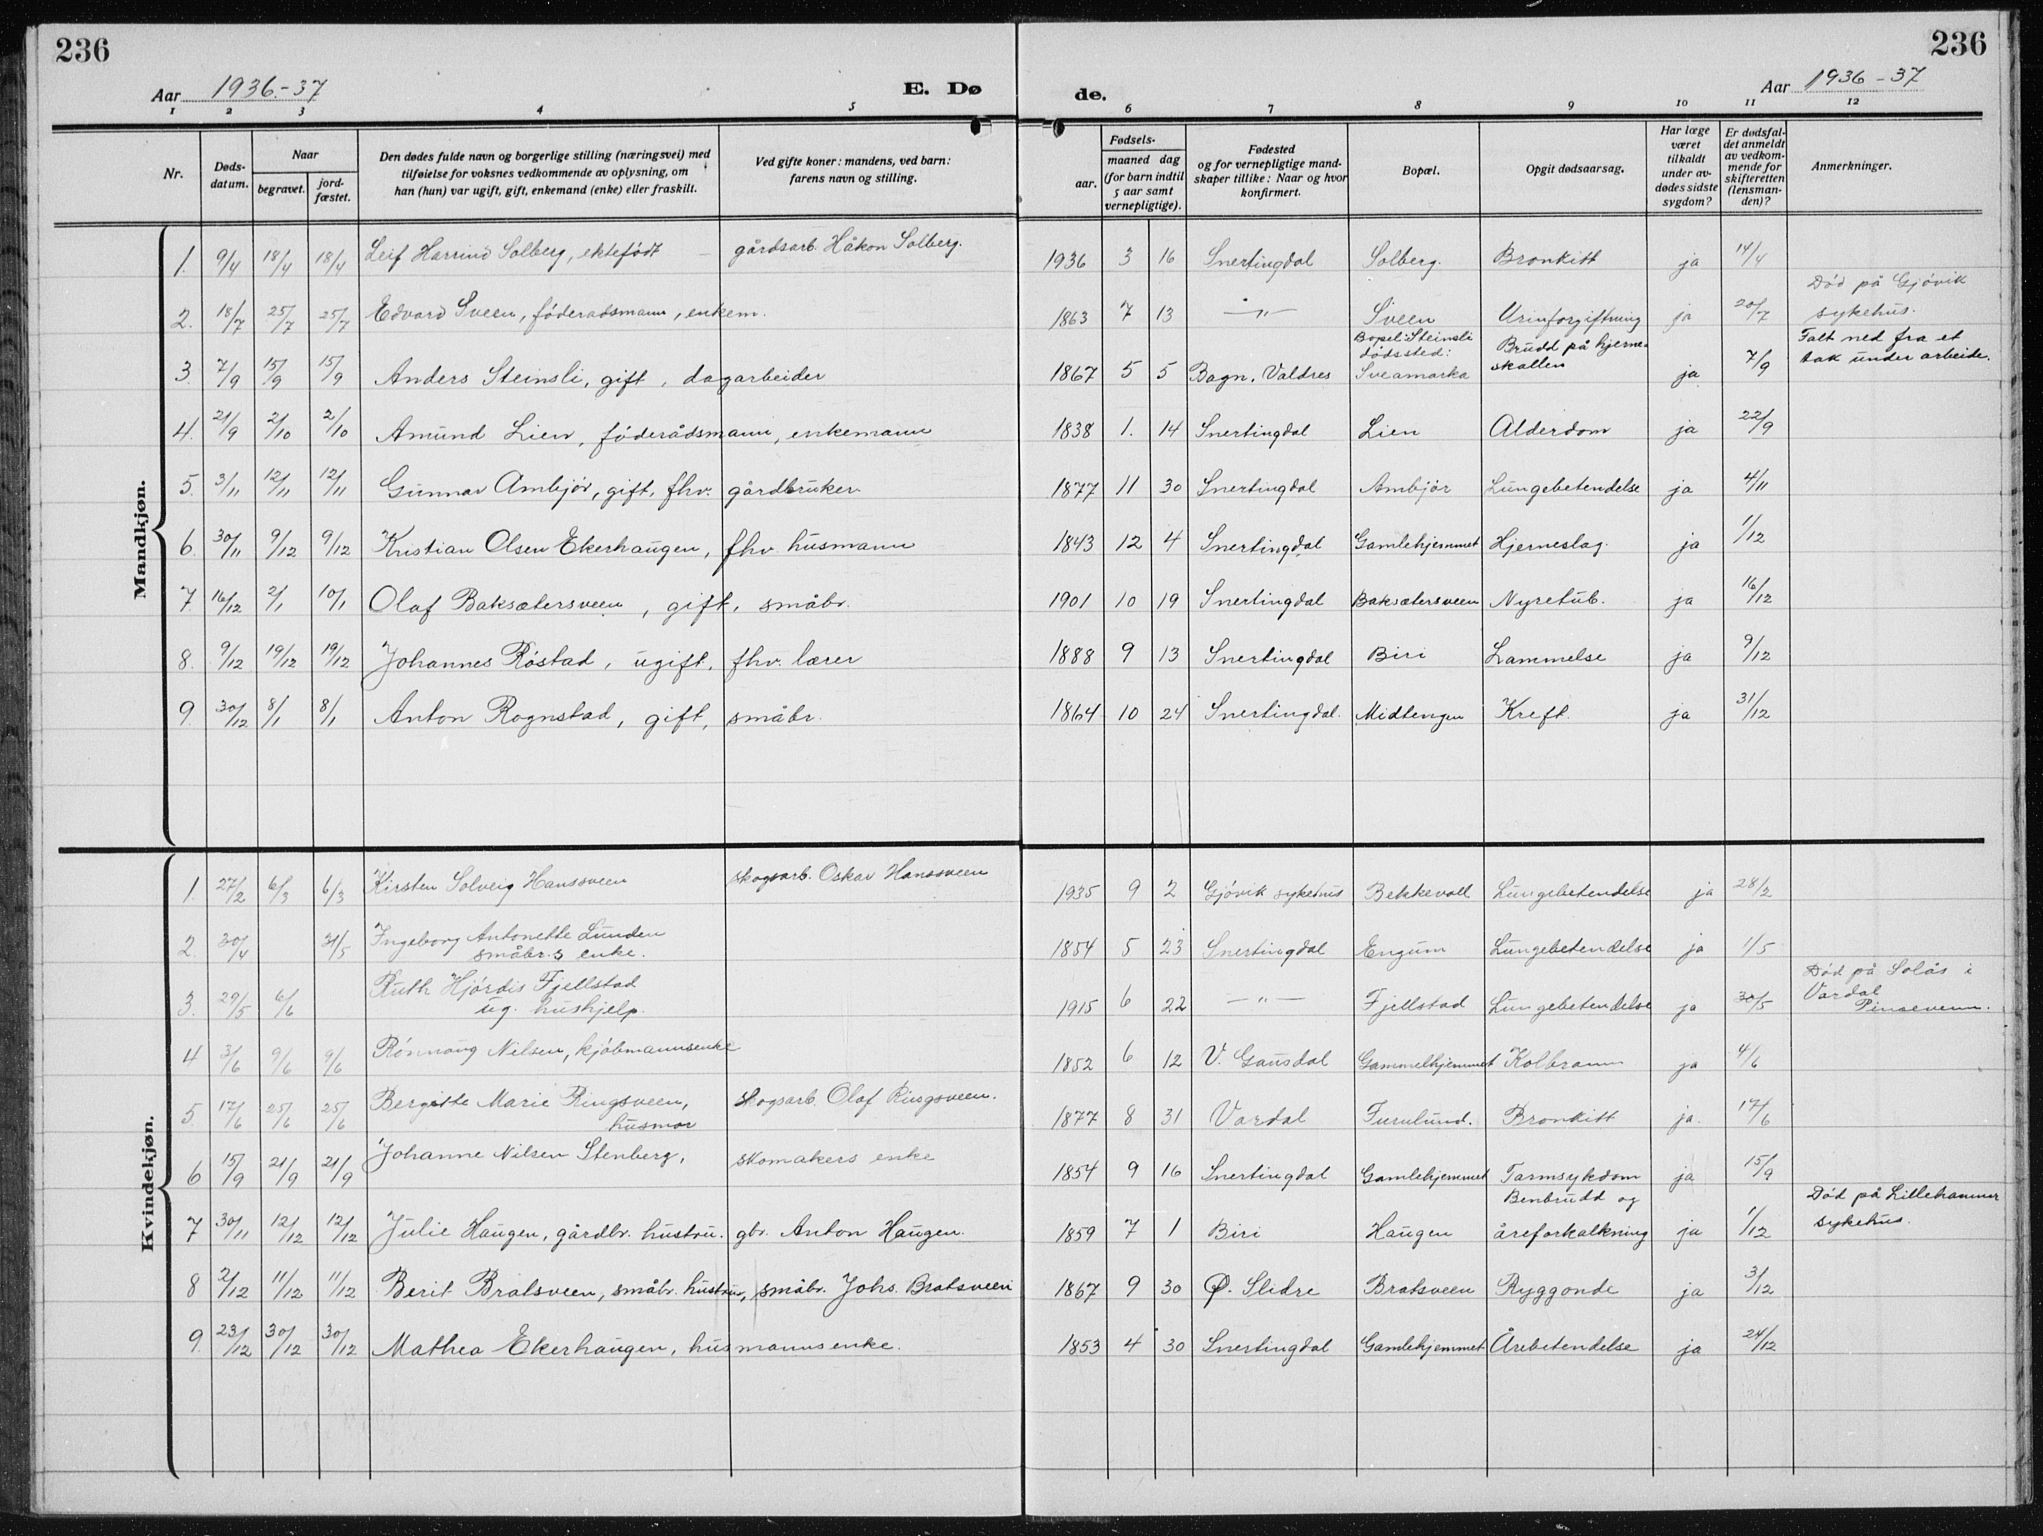 236
236
Aar 1936.-37
E. Dø
de.
Aar 1936-37
1 2 3 4 5 6 7 8 9 10 11 12
Nr.
Døds-
datum.
Naar
begravet.
jord-
fæstet.
Den dødes fulde navn og borgerlige stilling (næringsvei) med
tilføielse for voksnes vedkommende av oplysning, om
han (hun) var ugift, gift, enkemand (enke) eller fraskilt.
Ved gifte koner: mandens, ved barn:
farens navn og stilling.
Fødsels-
aar.
maaned dag
(for barn indtil
5 aar samt
vernepligtige).
Fødested
og for vernepligtige mand-
skaper tillike: Naar og hvor
konfirmert.
Bopæl.
Opgit dødsaarsag.
Har læge
været
tilkaldt
under av-
dødes sidste
sygdom?
Er dødsfal-
det anmeldt
av vedkom-
mende for
skifteretten
(lensman-
den)?
Anmerkninger.
Mandkjøn.
1. 9/4 18/4 18/4 Leif Solberg, ektefødt – gårdsarb. Håkon Solberg. 1936 3 16 Snertingdal Solberg. Bronkitt ja 14/4
2. 18/7 25/7 25/7 Edvard Sveen, föderadsmann, enkem. 1863 7 13 —"— Sveen Urinforgiftning ja 20/7 Död på Gjövik
sykehus.
3 7/9 15/9 15/9 Anders Steinsli, gift, dagarbeider 1867 5 5 Bagn, Valdres Bopel: Steinsli
dödssted:
Sveamarka Brudd på hjerne-
skallen ja 7/9 Falt ned fra et
tak under arbeide.
4. 21/9 2/10 2/10 Amund Lien, föderådsmann, enkemann 1838 1. 14 Snertingdal Lien Alderdom ja 22/9
5. 3/11 12/11 12/11 Gunnar Ambjör, gift, fhv. gårdbruker 1877 11 30 Snertingdal Ambjör Lungebetendelse ja 4/11
6. 30/11 9/12 9/12 Kristian Olsen Ekerhaugen, fhv. husmann 1843 12 4 Snertingdal Gamlehjemmet Hjerneslag. ja 1/12
7 16/12 2/1 10/1 Olaf Baksætersveen, gift, småbr. 1901 10 19 Snertingdal Baksætersveen Nyretub. ja 16/12
8. 9/12 19/12 19/12 Johannes Röstad, ugift, fhv. lærer 1888 9 13 Snertingdal Biri Lammelse ja 9/12
9. 30/12 8/1 8/1 Anton Rognstad, gift, småbr. 1864 10 24 Snertingdal. Midtengen Kreft. ja 31/12
Kvindekjøn.
1. 27/2 6/3 6/3 Kirsten Solveig Hanssveen skogsarb. Oskar Hanssveen 1935 9 2 Gjövik sykehus Bekkevoll Lungebetendelse ja 28/2
2. 30/4 31/5 Ingeborg Antonette Lunden
småbr.s enke. 1854 5 23 Snertingdal Engum Lungebetendelse ja 1/5
3. 29/5 6/6 Ruth Hjördis Fjellstad
ug. hushjelp. 1915 6 22 —"— Fjellstad Lungebetendelse ja 30/5 Död på Solås i
Vardal
Pinsevenn.
4 3/6 9/6 9/6 Rönnaug Nilsen, kjöbmannsenke 1852 6 12 V. Gausdal Gammelhjemmet Kolbrann ja 4/6
5. 17/6 25/6 25/6 Bergitte Marie Ringsveen,
husmor skogsarb. Olaf Ringsveen. 1877 8 31 Vardal Furulund. Bronkitt ja. 17/6
6 15/9 21/9 21/9 Johanne Nilsen Stenberg, skomakers enke 1854 9 16 Snertingdal Gamlehjemmet Tarmsykdom ja 15/9
7 30/11 12/12 12/12 Julie Haugen, gårdbr. hustru. gbr. Anton Haugen. 1859 7 1 Biri Haugen Benbrudd og
åreforkalkning ja 1/12 Död på Lillehammer
sykehus.
8 2/12 11/12 11/12 Berit Bratsveen, småbr. hustru, småbr. Johs. Bratsveen 1867 9 30 Ø. Slidre Bratsveen Ryggonde ja 3/12
9. 23/12 30/12 30/12 Mathea Ekerhaugen, husmannsenke. 1853 4 30 Snertingdal Gamlehjemmet Årebetendelse ja 24/12